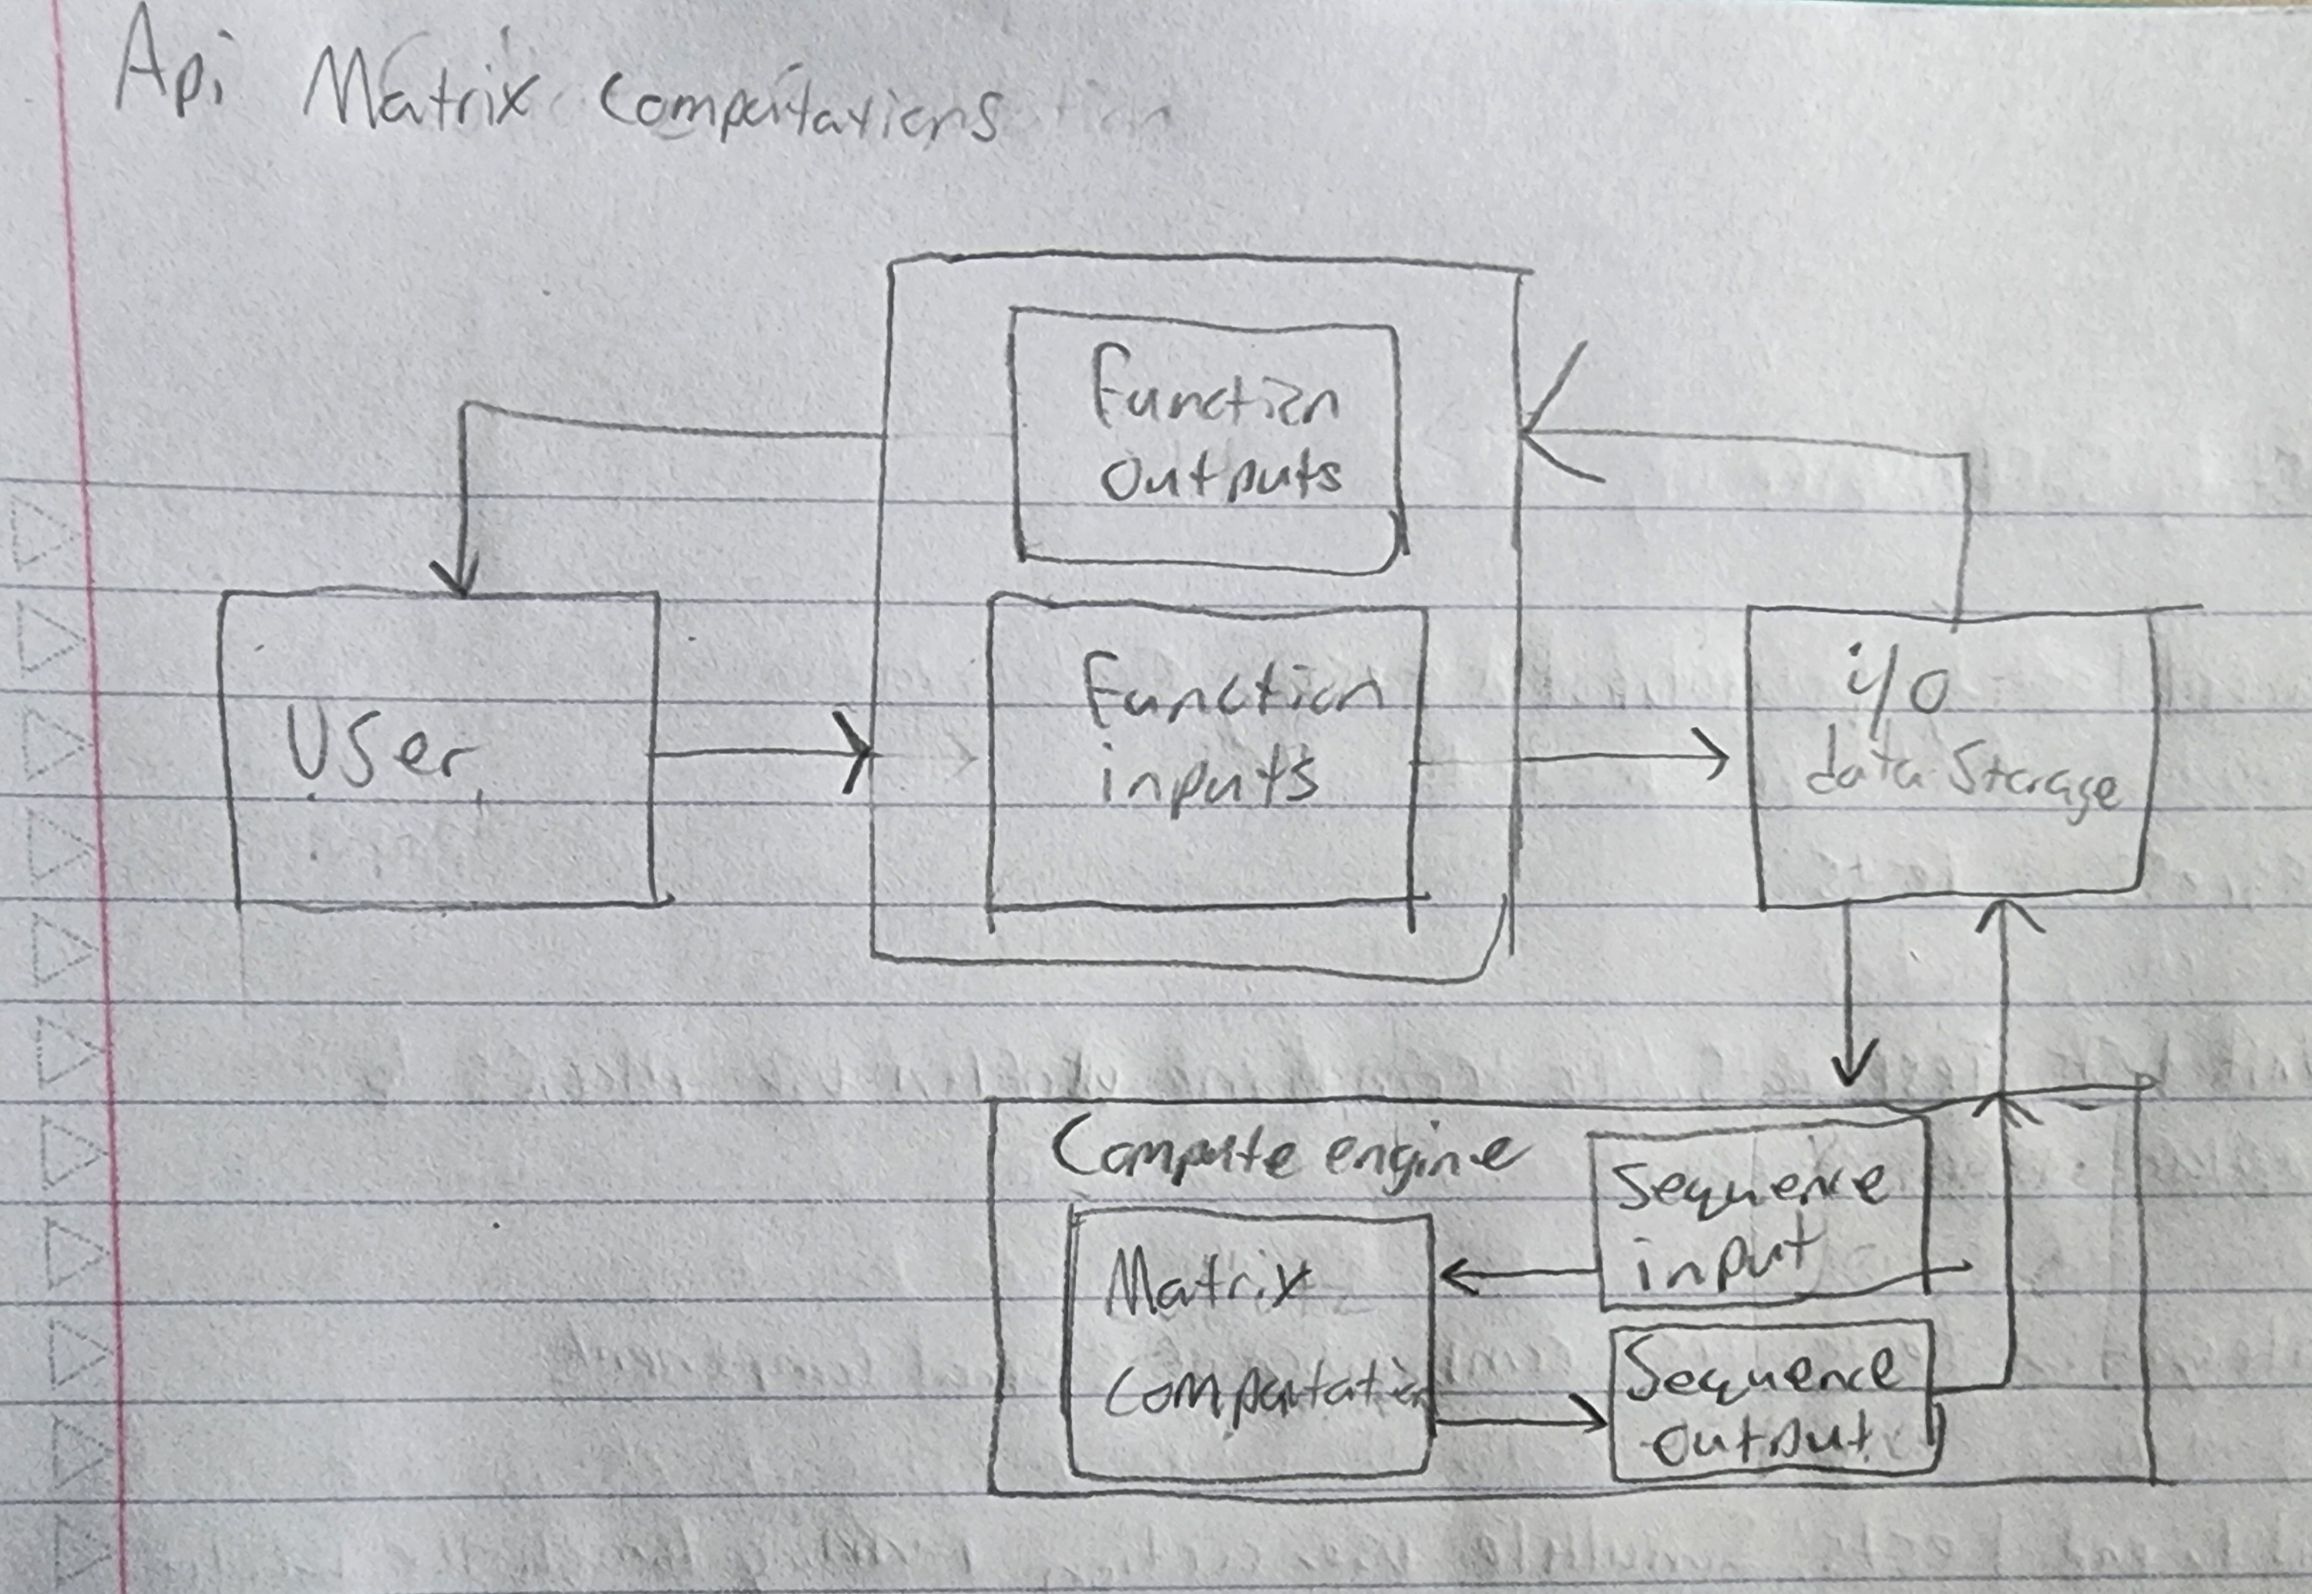 Api Matrix Computations
Function
Outputs
User
Function
inputs
i/o
data Storage
Compute engine
Sequence
input
Matrix
Computation
Sequence
output